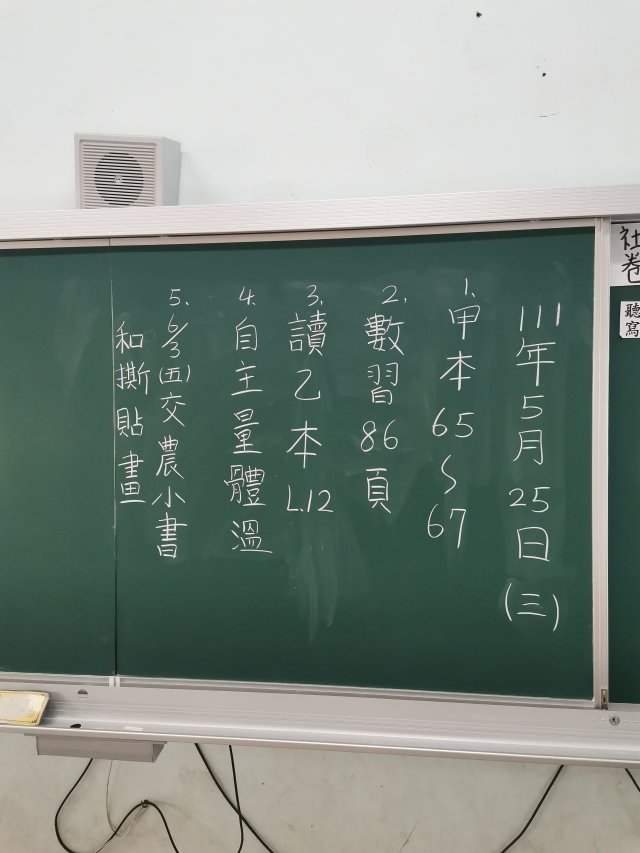 111年5月25日(三)
1.甲本65~67
2.數習86頁
3.讀乙本L.12
4.自主量體溫
5.6/3(五)交農小書
和撕貼畫
社卷
聽寫